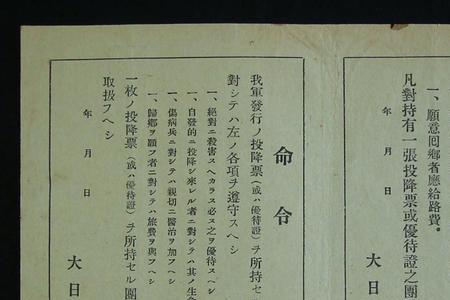 一、願意囘鄉者應給路費。
凡對持有一張投降票或優待證之團
年　月　日
大日
命令
我軍發行ノ投降票(或ハ優待證)ヲ所持セ
對シテハ左ノ各項ヲ遵守スヘシ
一、絕對ニ殺害スヘカラス必ス之ヲ優待スヘシ
一、自發的ニ投降シ來レル者ニ對シテハ其ノ生
一、傷病兵ニ對シテハ親切ニ醫治ヲ加フヘシ
一、歸鄉ヲ願フ者ニ對シテハ旅費ヲ與フヘシ
一枚ノ投降票(或ハ優待證)ヲ所持セル團
取扱フヘシ
年　月　日
大日